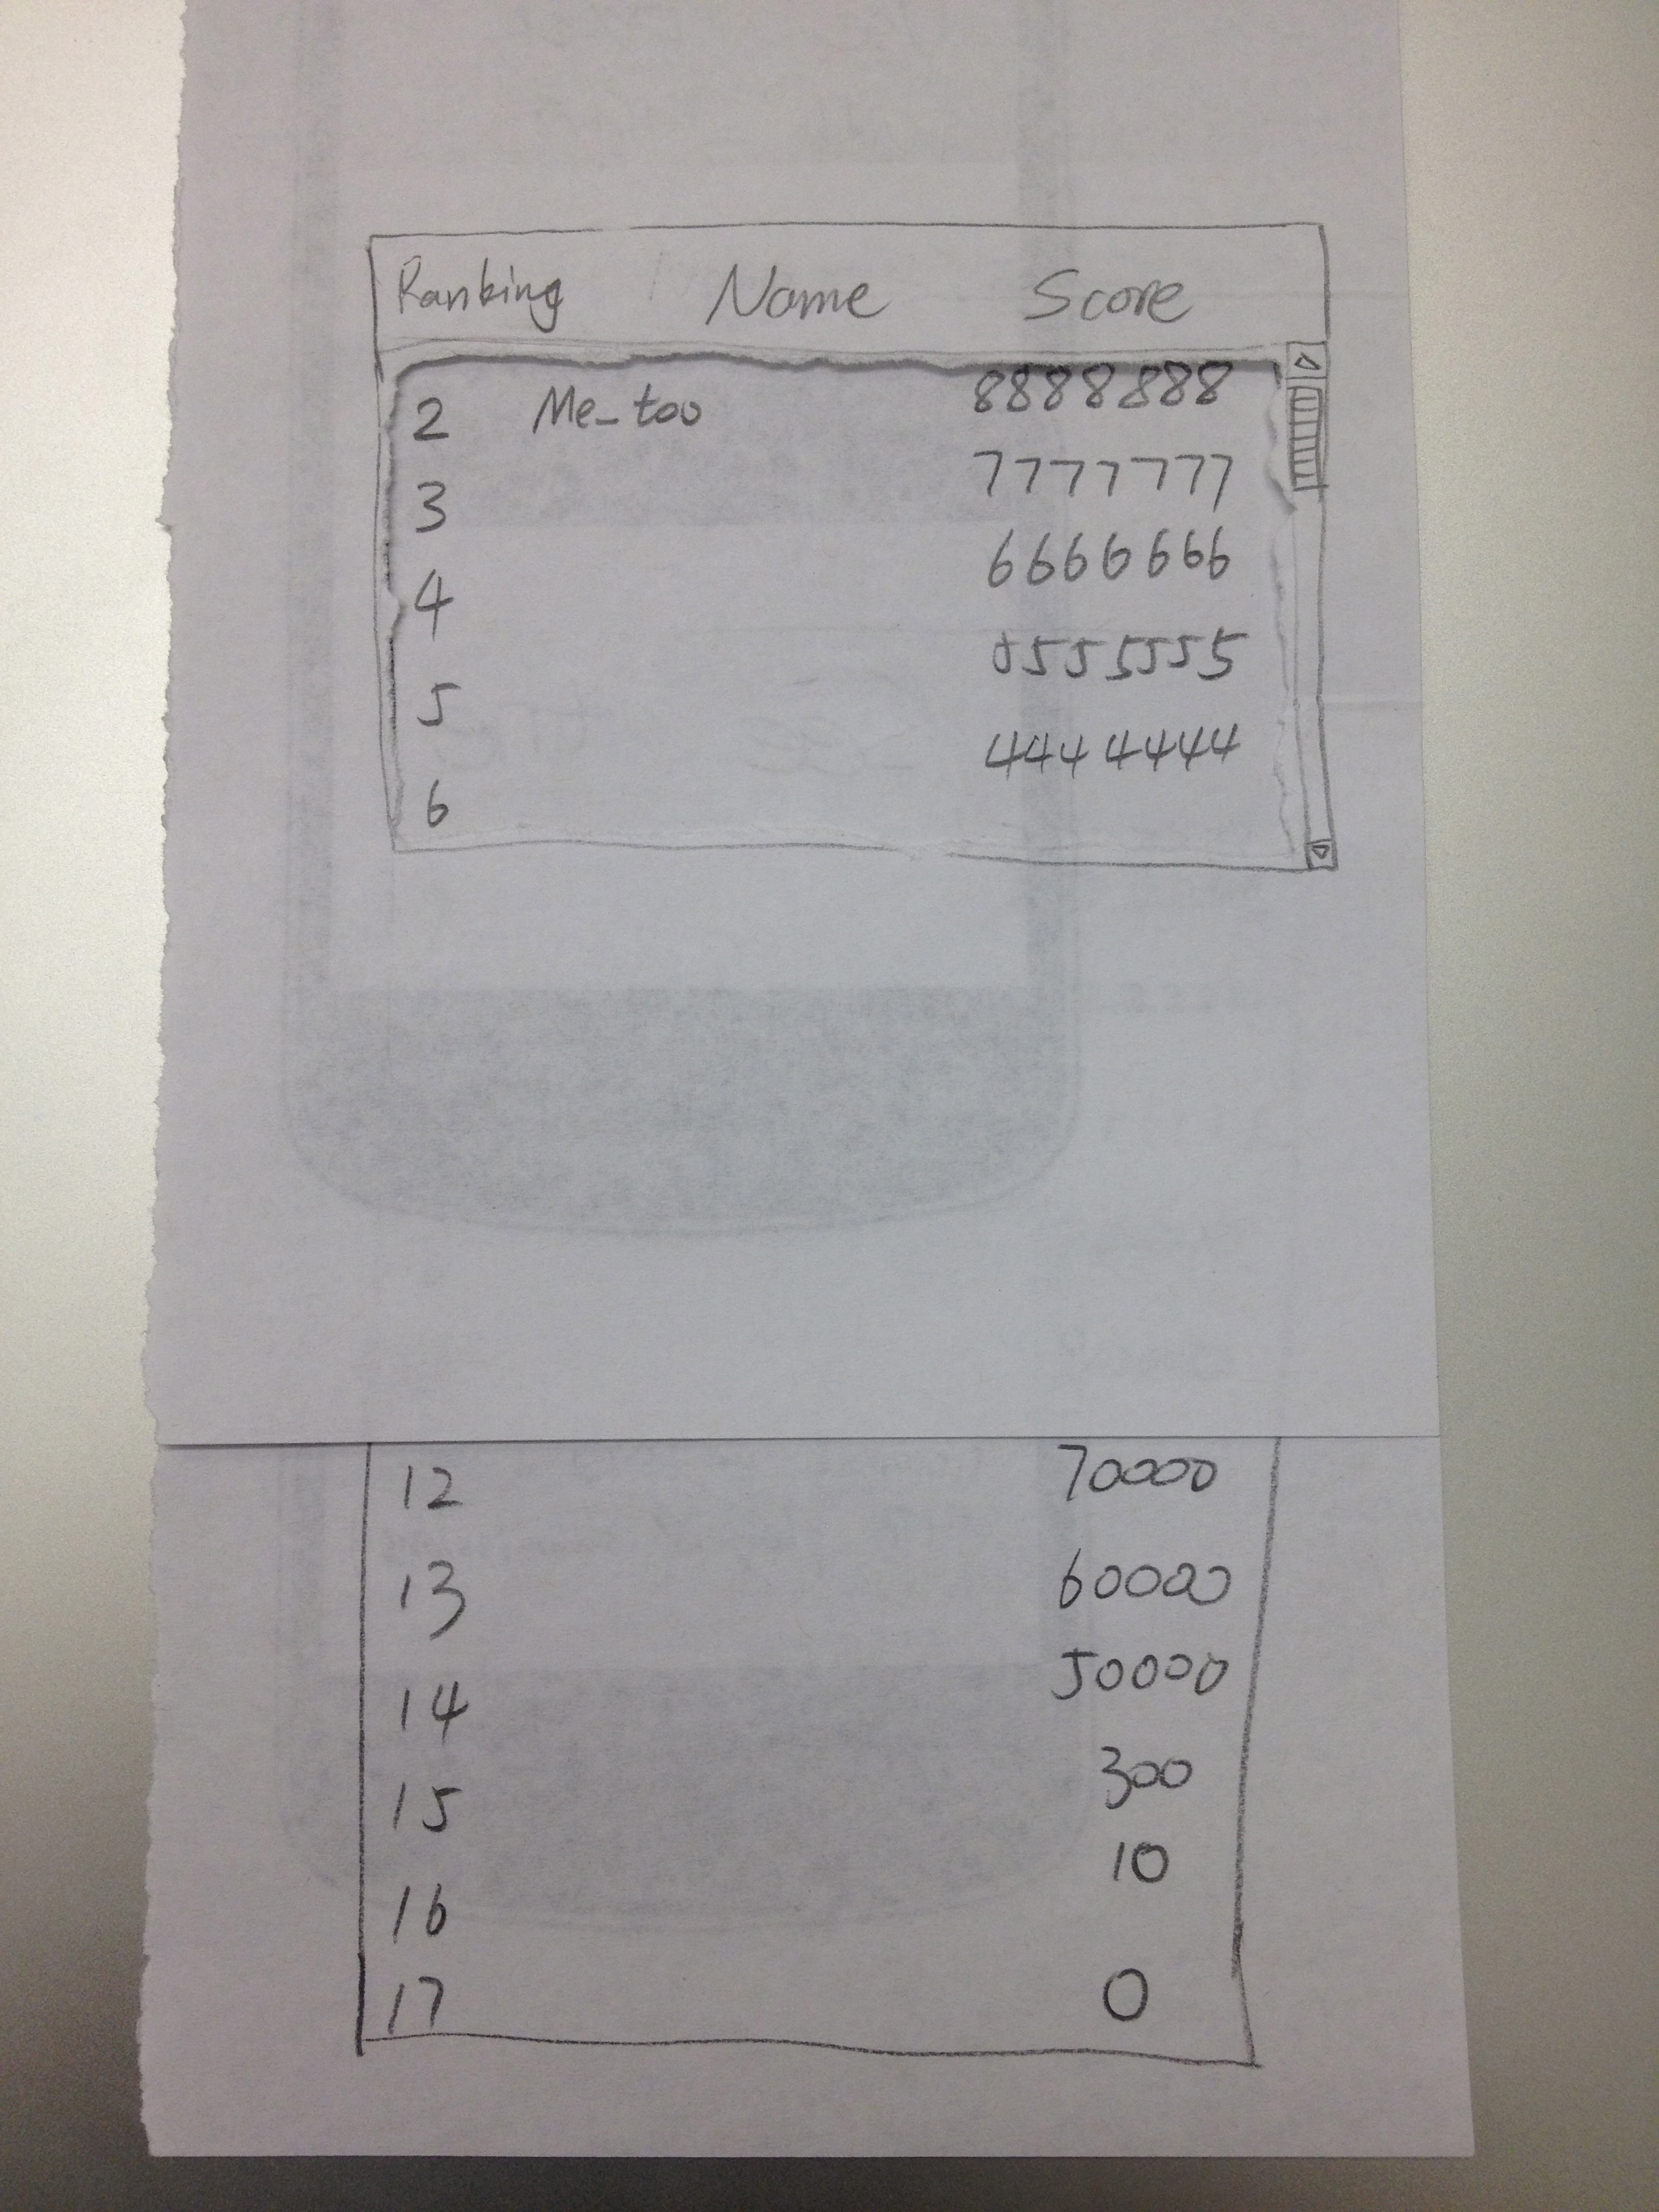 Ranking Name Score
2 Me_too 8888888
3 7777777
4 6666666
5 5555555
6 4444444
12 70000
13 60000
14 50000
15 300
16 10
17 0